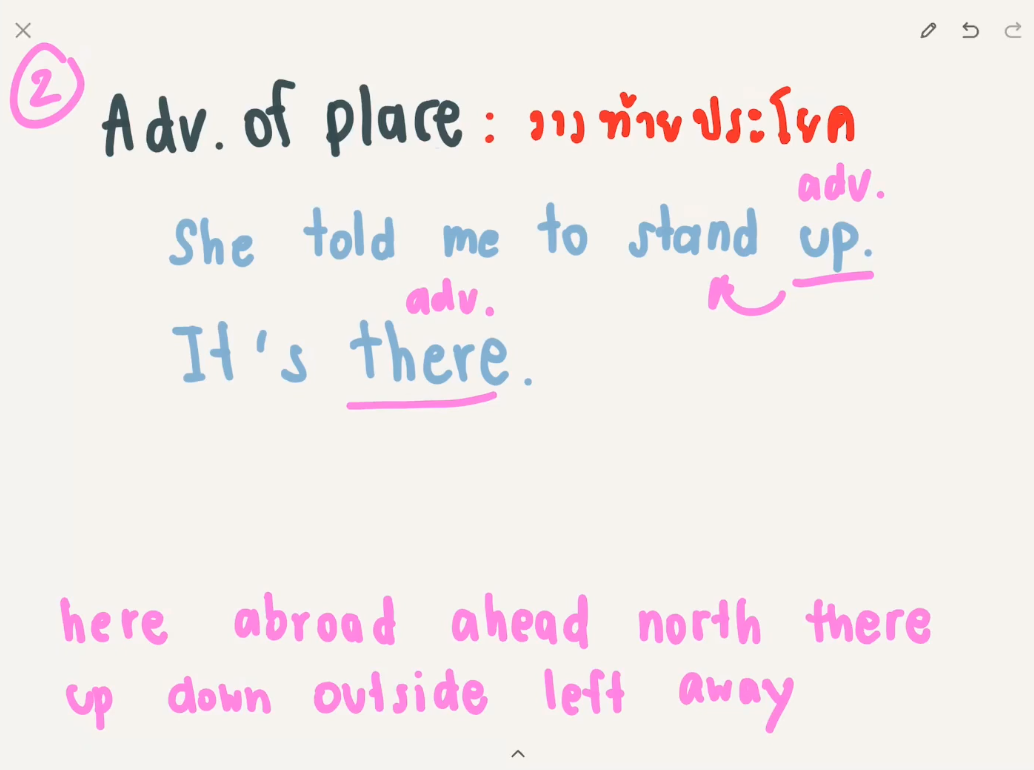 2
Adv. of place : วางท้ายประโยค
adv.
She told me to stand up.
adv.
It's there.
here abroad ahead north there
up down outside left away